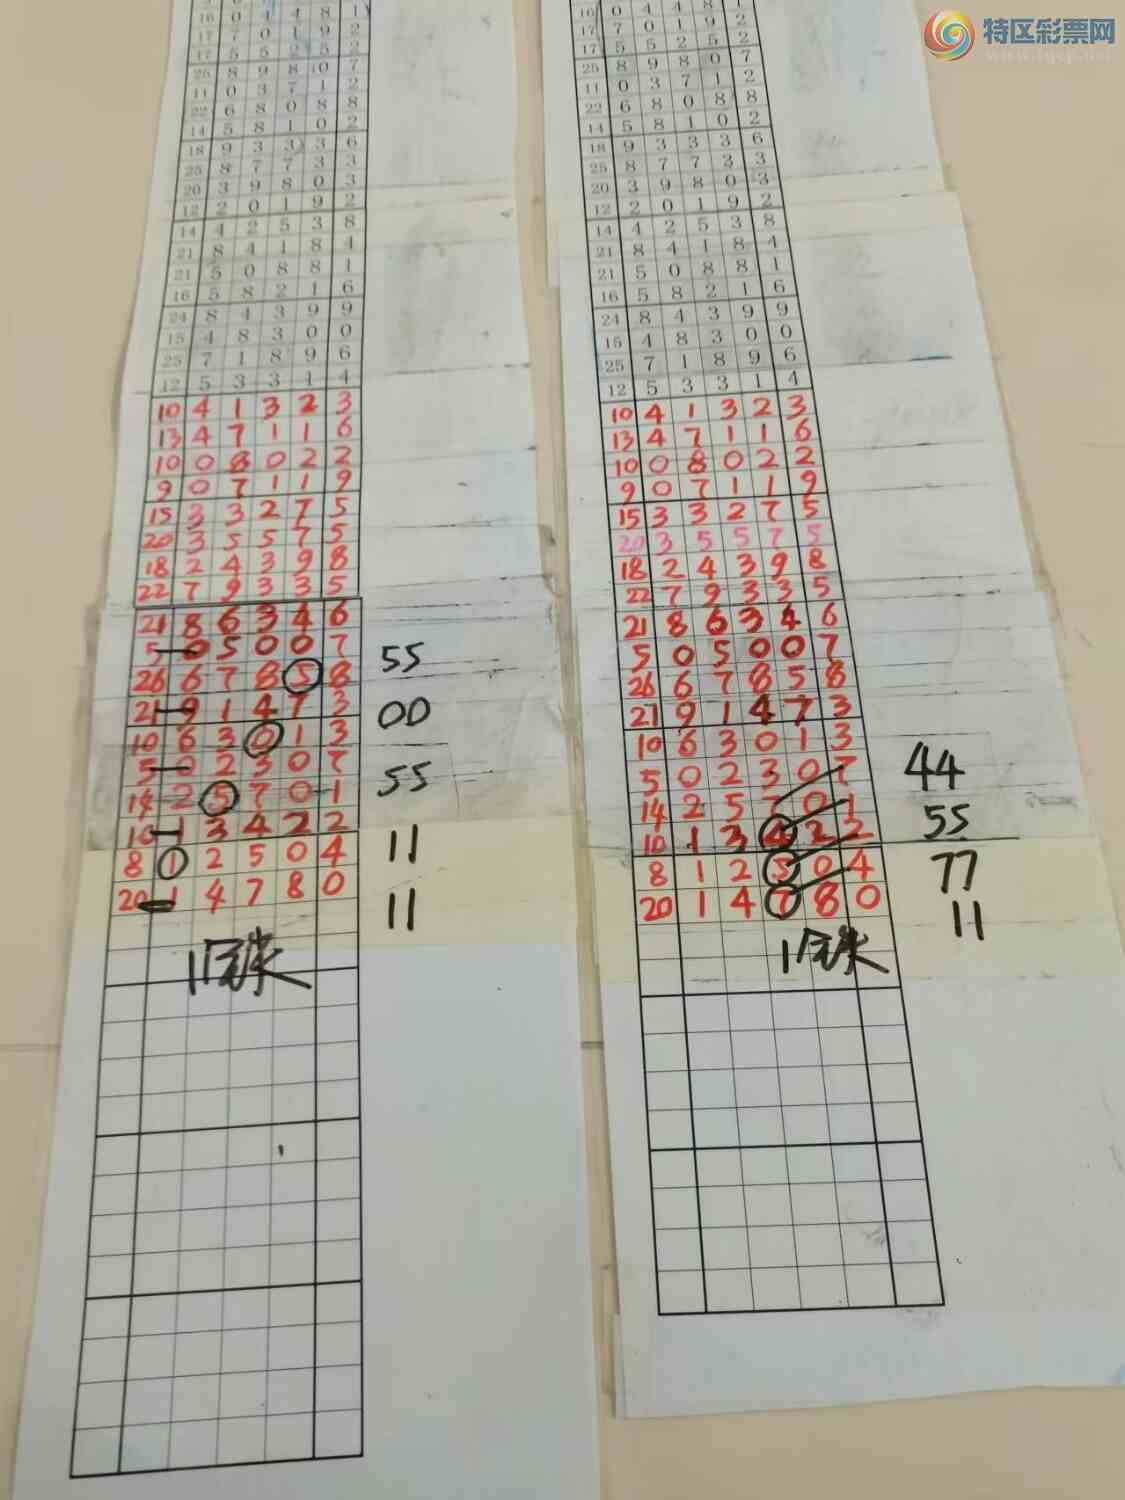 特区彩票网
16 0 4 4 8 1
17 7 0 1 9 2
17 5 5 2 5 2
25 8 9 8 0 7
11 0 3 7 1 2
22 6 8 0 8 8
14 5 8 1 0 2
18 9 3 3 3 6
25 8 7 7 3 3
20 3 9 8 0 3
12 2 0 1 9 2
14 4 2 5 3 8
21 8 4 1 8 4
21 5 0 8 8 1
16 5 8 2 1 6
24 8 4 3 9 9
15 4 8 3 0 0
25 7 1 8 9 6
12 5 3 3 1 4
10 4 1 3 2 3
13 4 7 1 1 6
10 0 8 0 2 2
9 0 7 1 1 9
15 3 3 2 7 5
20 3 5 5 7 5
18 2 4 3 9 8
22 7 9 3 3 5
21 8 6 3 4 6
5 0 5 0 0 7 55
26 6 7 8 5 8
21 9 1 4 7 3 00
10 6 3 0 1 3
5 0 2 3 0 7 55
14 2 5 7 0 1
10 1 3 4 2 2 11
8 1 2 5 0 4
20 1 4 7 8 0 11
16 0 4 4 8 1
17 7 0 1 9 2
17 5 5 2 5 2
25 8 9 8 0 7
11 0 3 7 1 2
22 6 8 0 8 8
14 5 8 1 0 2
18 9 3 3 3 6
25 8 7 7 3 3
20 3 9 8 0 3
12 2 0 1 9 2
14 4 2 5 3 8
21 8 4 1 8 4
21 5 0 8 8 1
16 5 8 2 1 6
24 8 4 3 9 9
15 4 8 3 0 0
25 7 1 8 9 6
12 5 3 3 1 4
10 4 1 3 2 3
13 4 7 1 1 6
10 0 8 0 2 2
9 0 7 1 1 9
15 3 3 2 7 5
20 3 5 5 7 5
18 2 4 3 9 8
22 7 9 3 3 5
21 8 6 3 4 6
5 0 5 0 0 7
26 6 7 8 5 8
21 9 1 4 7 3
10 6 3 0 1 3
5 0 2 3 0 7 44
14 2 5 7 0 1
10 1 3 4 2 2 55
8 1 2 5 0 4 77
20 1 4 7 8 0 11